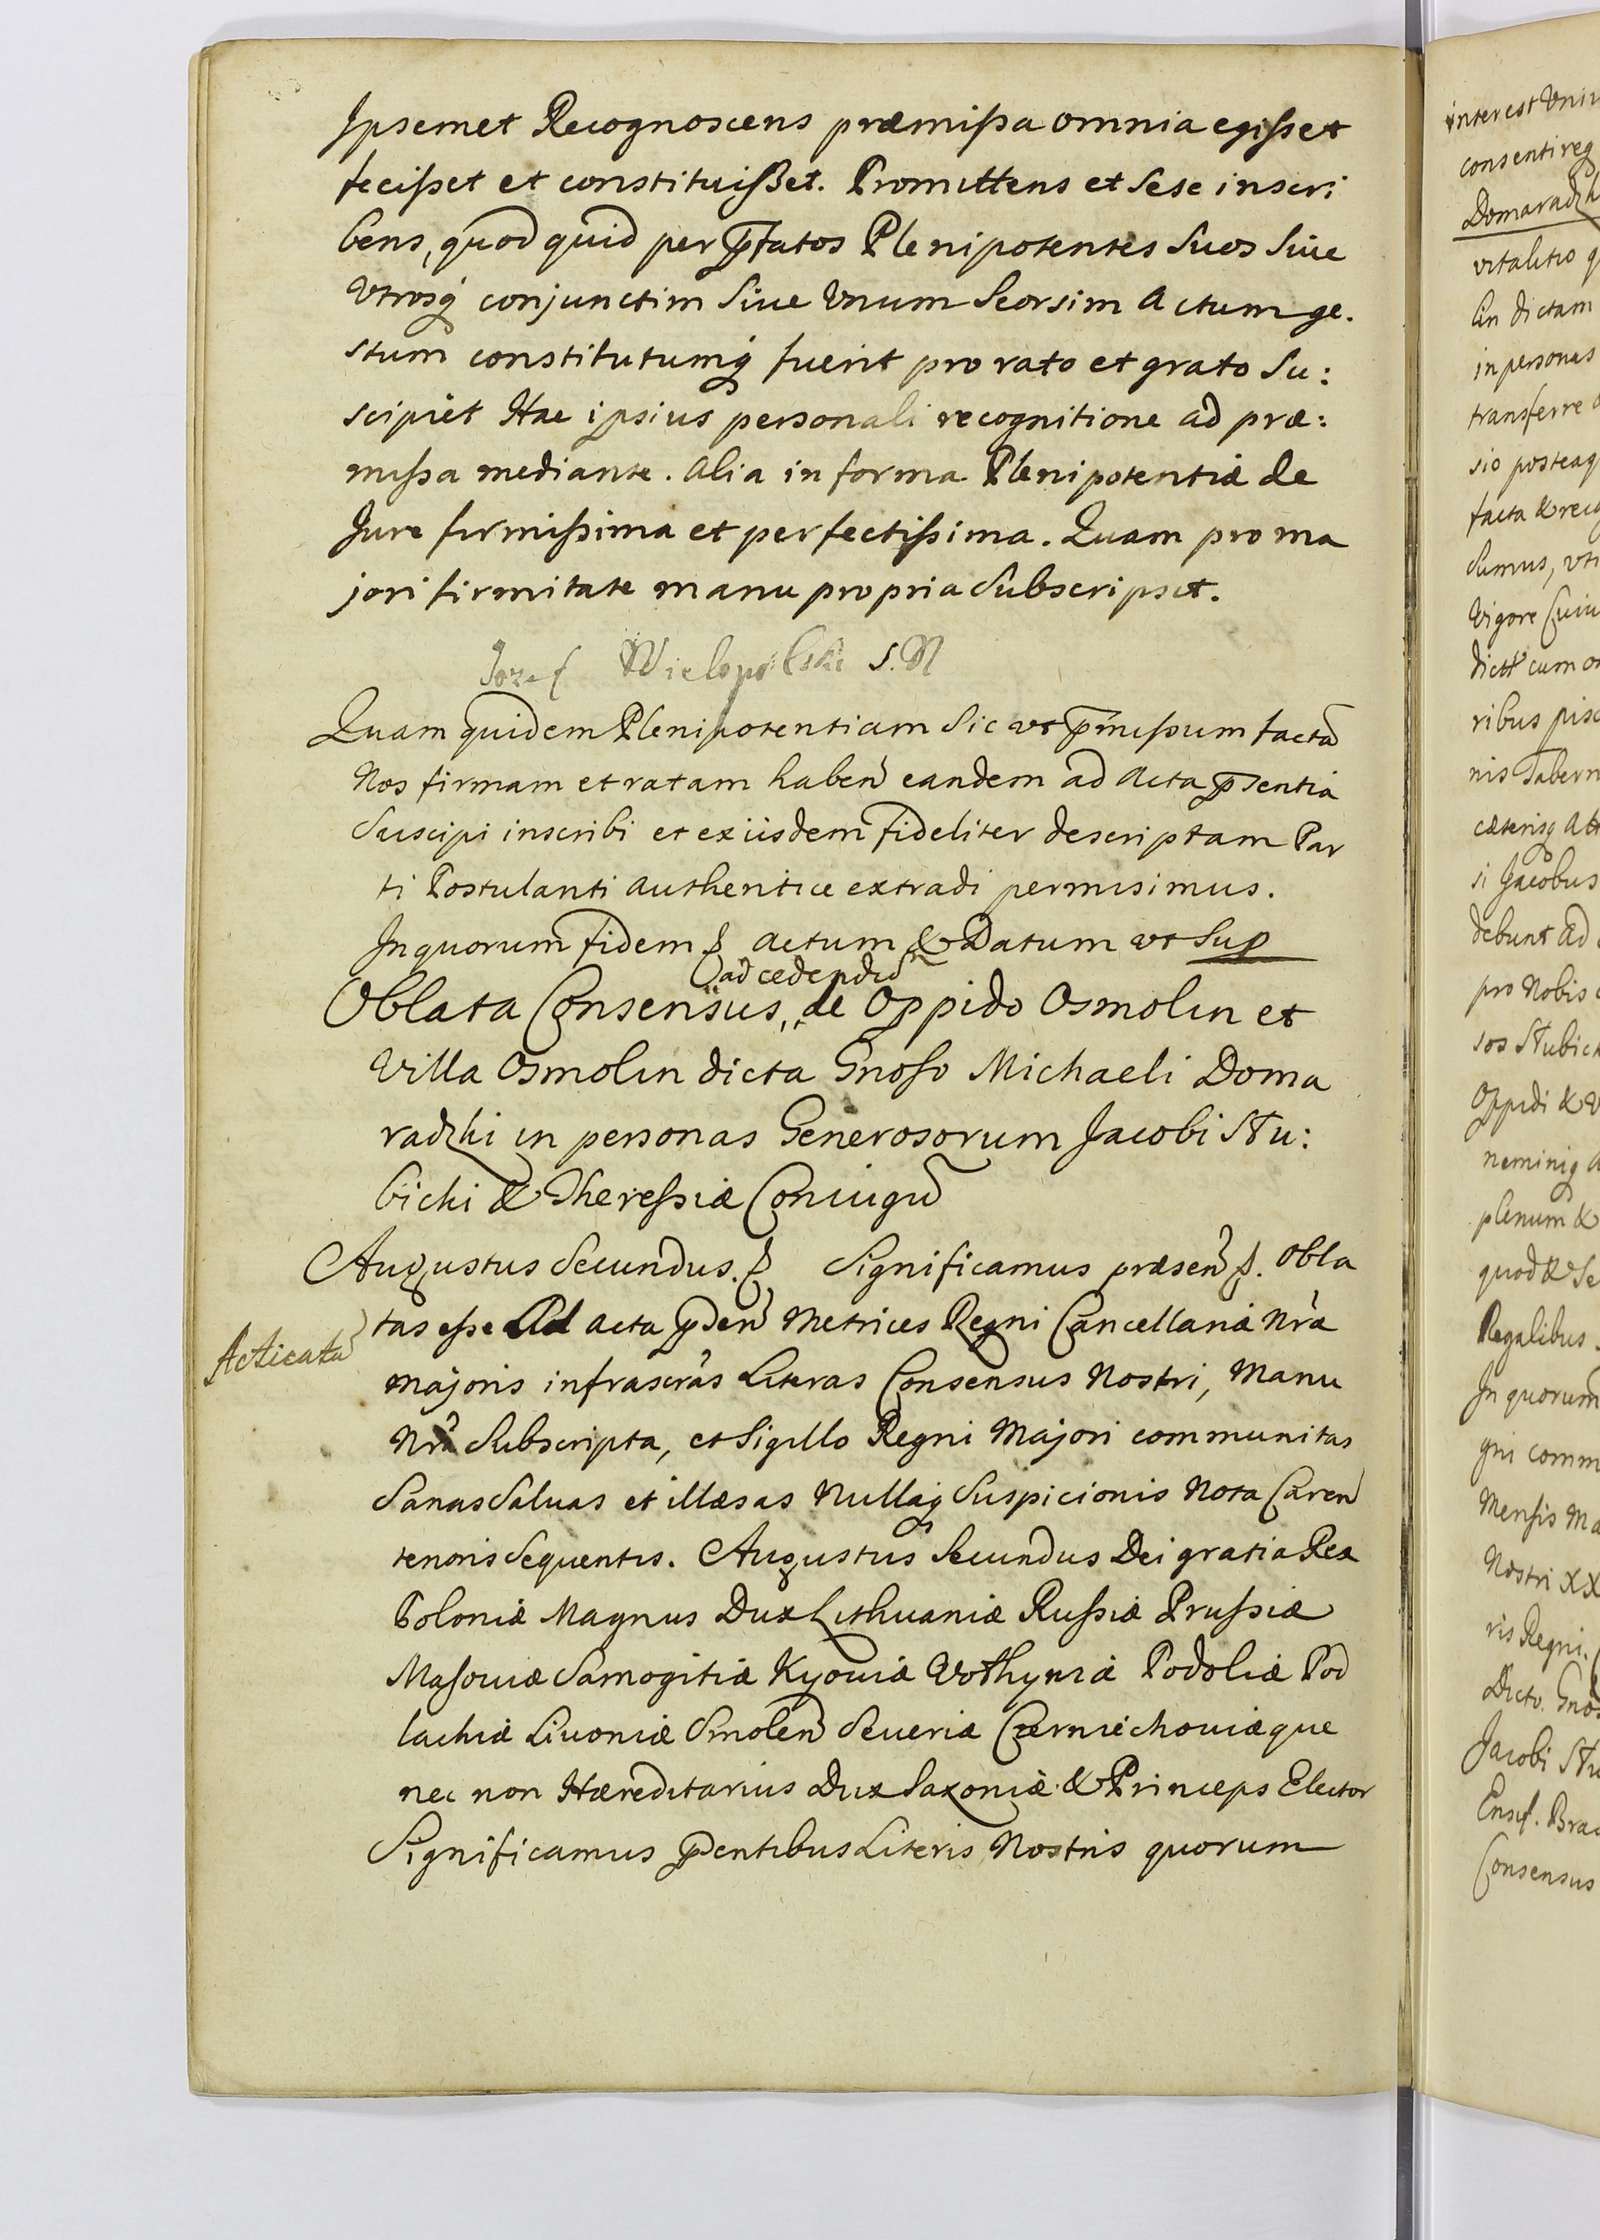 Ipsemet Recognoscens præmissa omnia egisset
fecisset et constituisset. Promittens et sese inscri
bens, quod quid per p̄fatos Plenipotentes suos siue
Vtrosq́ conjunctim siue Vnum seorsim actum ge.
stum constitutumq́ fuerit pro rato et grato su:
scipiet Hac ipsius personali recognitione ad præ:
missa mediante. alia in forma Plenipotentiæ de
Jure firmissima et perfectissima. Quam pro ma
jori firmitate manu propria subscripsit.
Jozef Wielopolski S. N
Quam quidem Plenipotentiam sic vt p̄missum factā
Nos firmam et ratam haben̄ eandem ad Acta p̄sentia
suscipi inscribi et ex iisdem fideliter descriptam Par
ti Postulanti authentice extradi permisimus.
In quorum fidem ꝭ actum & Datum vt Sup
ad cedendū
Oblata Consensus, de Oppido Osmolin et
Villa Osmolin dicta Gnoso Michaeli Doma
radzki in personas Generosorum Jacobi Stu:
bicki & Theressiæ Coniugū
Augustus Secundus. ꝭ Significamus præsen̄ ꝭ. Obla
Acticatū
tas esse Ad acta p̄den̄ Metrices Regni Cancellariæ Nr̄æ
majoris infrascr̄as Literas Consensus Nostri, Manu
Nr̄a subscripta, et Sigillo Regni Majori communitas
Sanas Saluas et illæsas Nullaq́ Suspicionis Nota Caren̄
tenoris sequentis. Augustus Secundus Dei gratia Rex
Poloniæ Magnus Dux Lithuaniæ Russiæ Prussiæ
Masouiæ Samogitiæ Kyouiæ Volhyniæ Podoliæ Pod
lachiæ Liuoniæ Smolen̄ Seueriæ Czerniechouiæque
nec non Hæreditarius Dux Saxoniæ & Princeps Elector
Significamus p̄dentibus Literis Nostris quorum
interest Vniu
consenti reg
Domaradzk
vitalitio q
lin dictam
in personas
transferre
sio posteaq
facta & reco
sumus, vti
Vigore Cuiu
dict cum
ribus pisc
nis Tabern
cæterisq
si Jacobus
debunt ad
pro Nobis
sos Stubick
Oppidi & V
neminiq
plenum &
quod & Se
Regalibus
In quorum
gni comm
Mensis Ma
Nostri XX
ris Regni.
Dicto. Gnos
Jacobi Stu
Ensif. Bra
Consensus